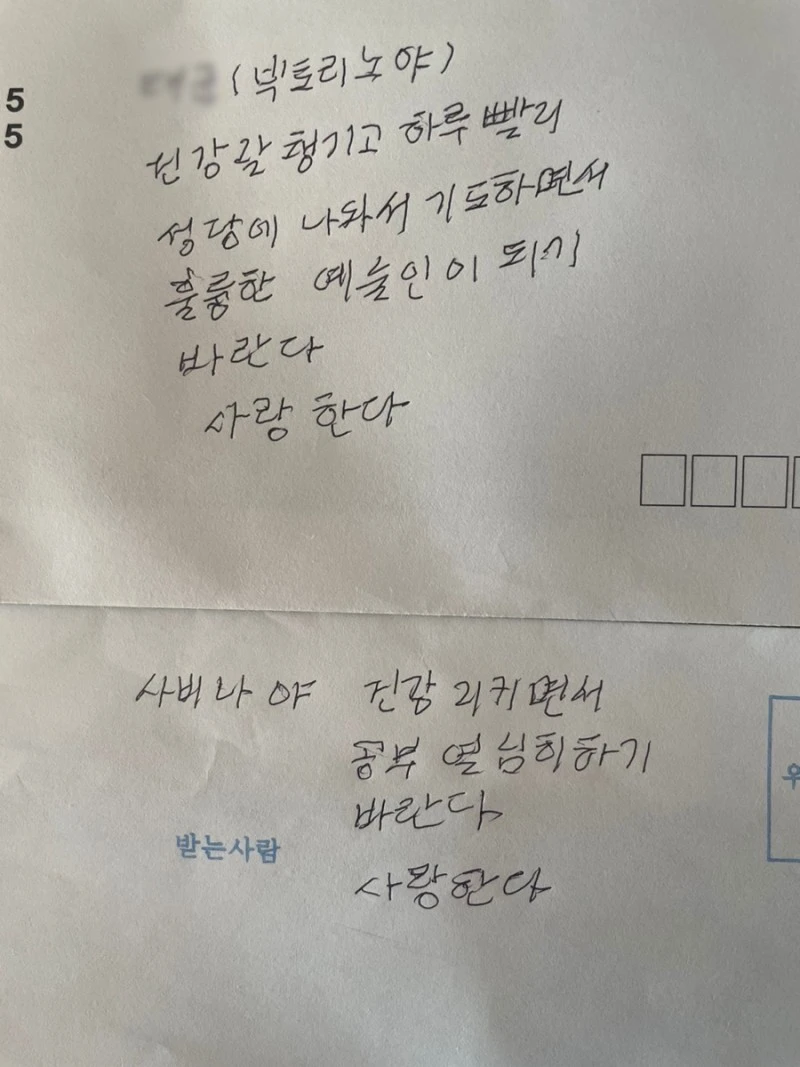 5
5
(빅토리노야)
건강 잘 챙기고 하루 빨리
성당에 나와서 기도하면서
훌륭한 예술인이 되기
바란다
사랑 한다
사비나야 건강 지키면서
공부 열심히하기
바란다
받는사람
사랑한다
우